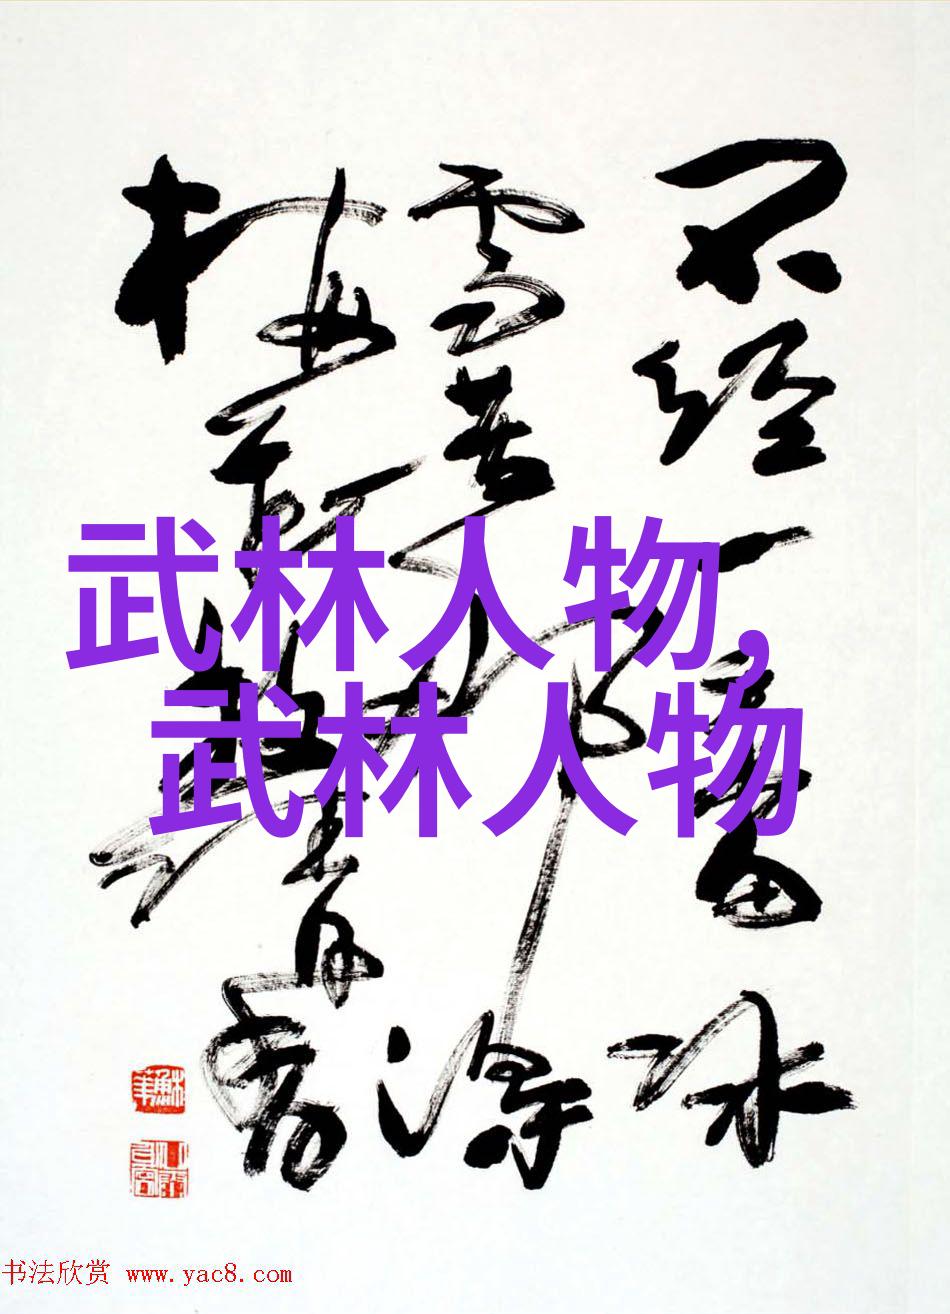 不经一番冰
雪苦 得
梅 清香
武林人物,
武林人物
书法欣赏 www.yac8.com